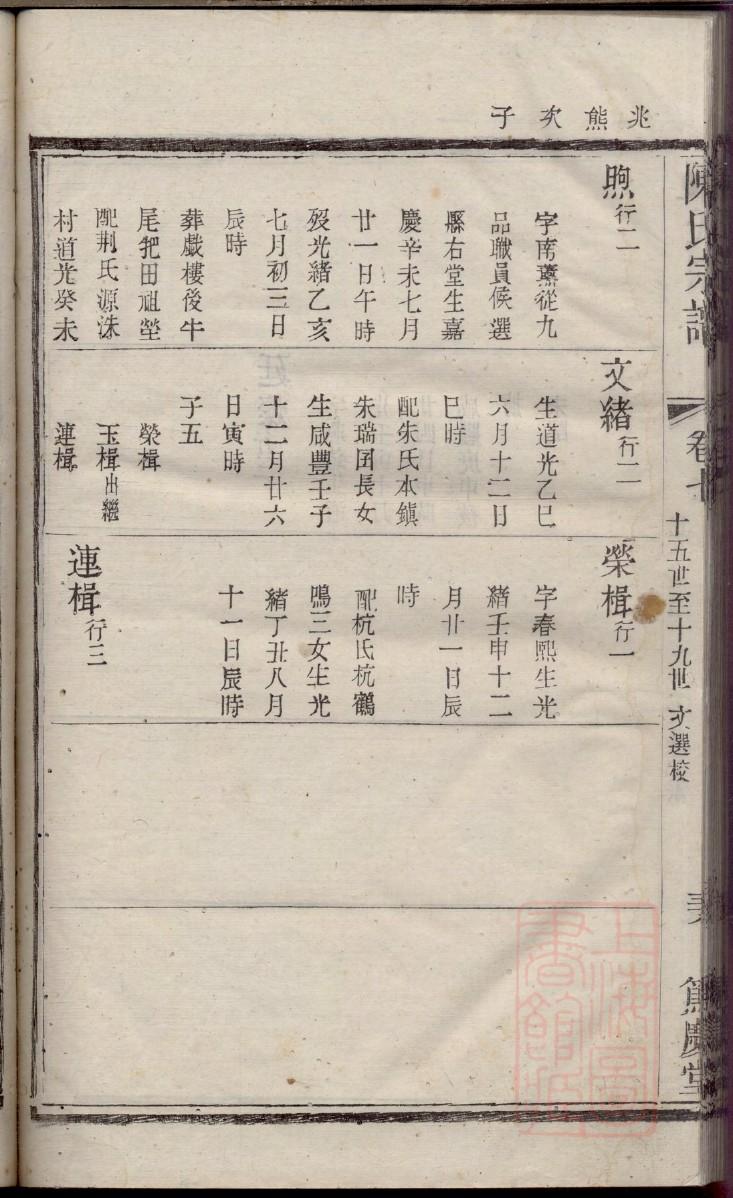 兆熊次子
陳氏宗譜
卷七
十五世至十九世 文選校
篤慶堂
煦行二
字南薰從九
品職員候選
縣右堂生嘉
慶辛未七月
廿一日午時
歿光緒乙亥
七月初三日
辰時
葬戲樓後牛
尾耙田祖塋
配荆氏源洙
村道光癸未
文緒行二
生道光乙巳
六月十二日
巳時
配朱氏本鎮
朱瑞囯長女
生咸豐壬子
十二月廿六
日寅時
子五
榮楫
玉楫出繼
蓮楫
榮楫行一
字春熙生光
緒壬申十二
月廿一日辰
時
配杭氏杭鶴
鳴三女生光
緒丁丑八月
十一日辰時
蓮楫行三
上海圖書館藏